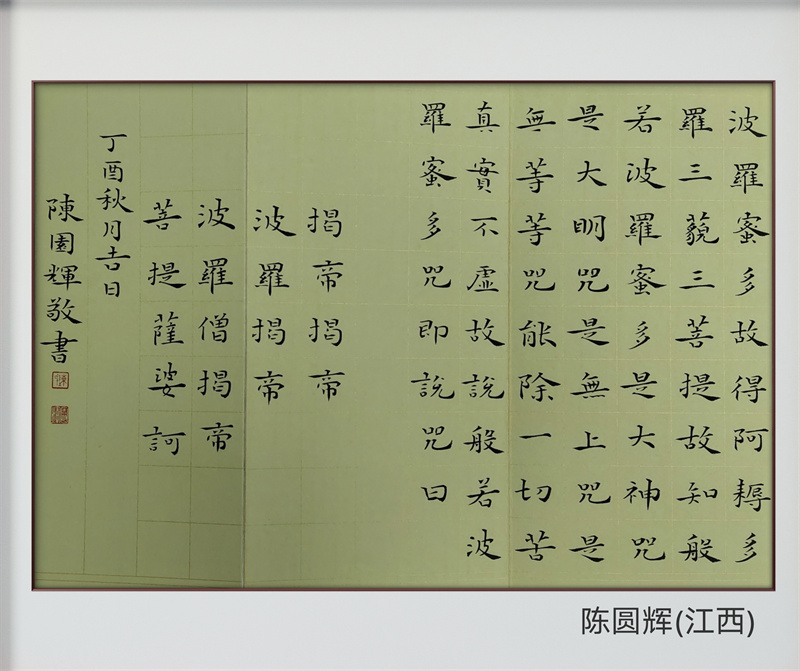 波羅蜜多故得阿耨多
羅三藐三菩提故知般
若波羅蜜多是大神咒
是大明咒是無上咒是
無等等咒能除一切苦
真實不虛故說般若波
羅蜜多咒即說咒曰
揭帝揭帝
波羅揭帝
波羅僧揭帝
菩提薩婆訶
丁酉秋月吉日
陳圓輝敬書
陈圆辉(江西)